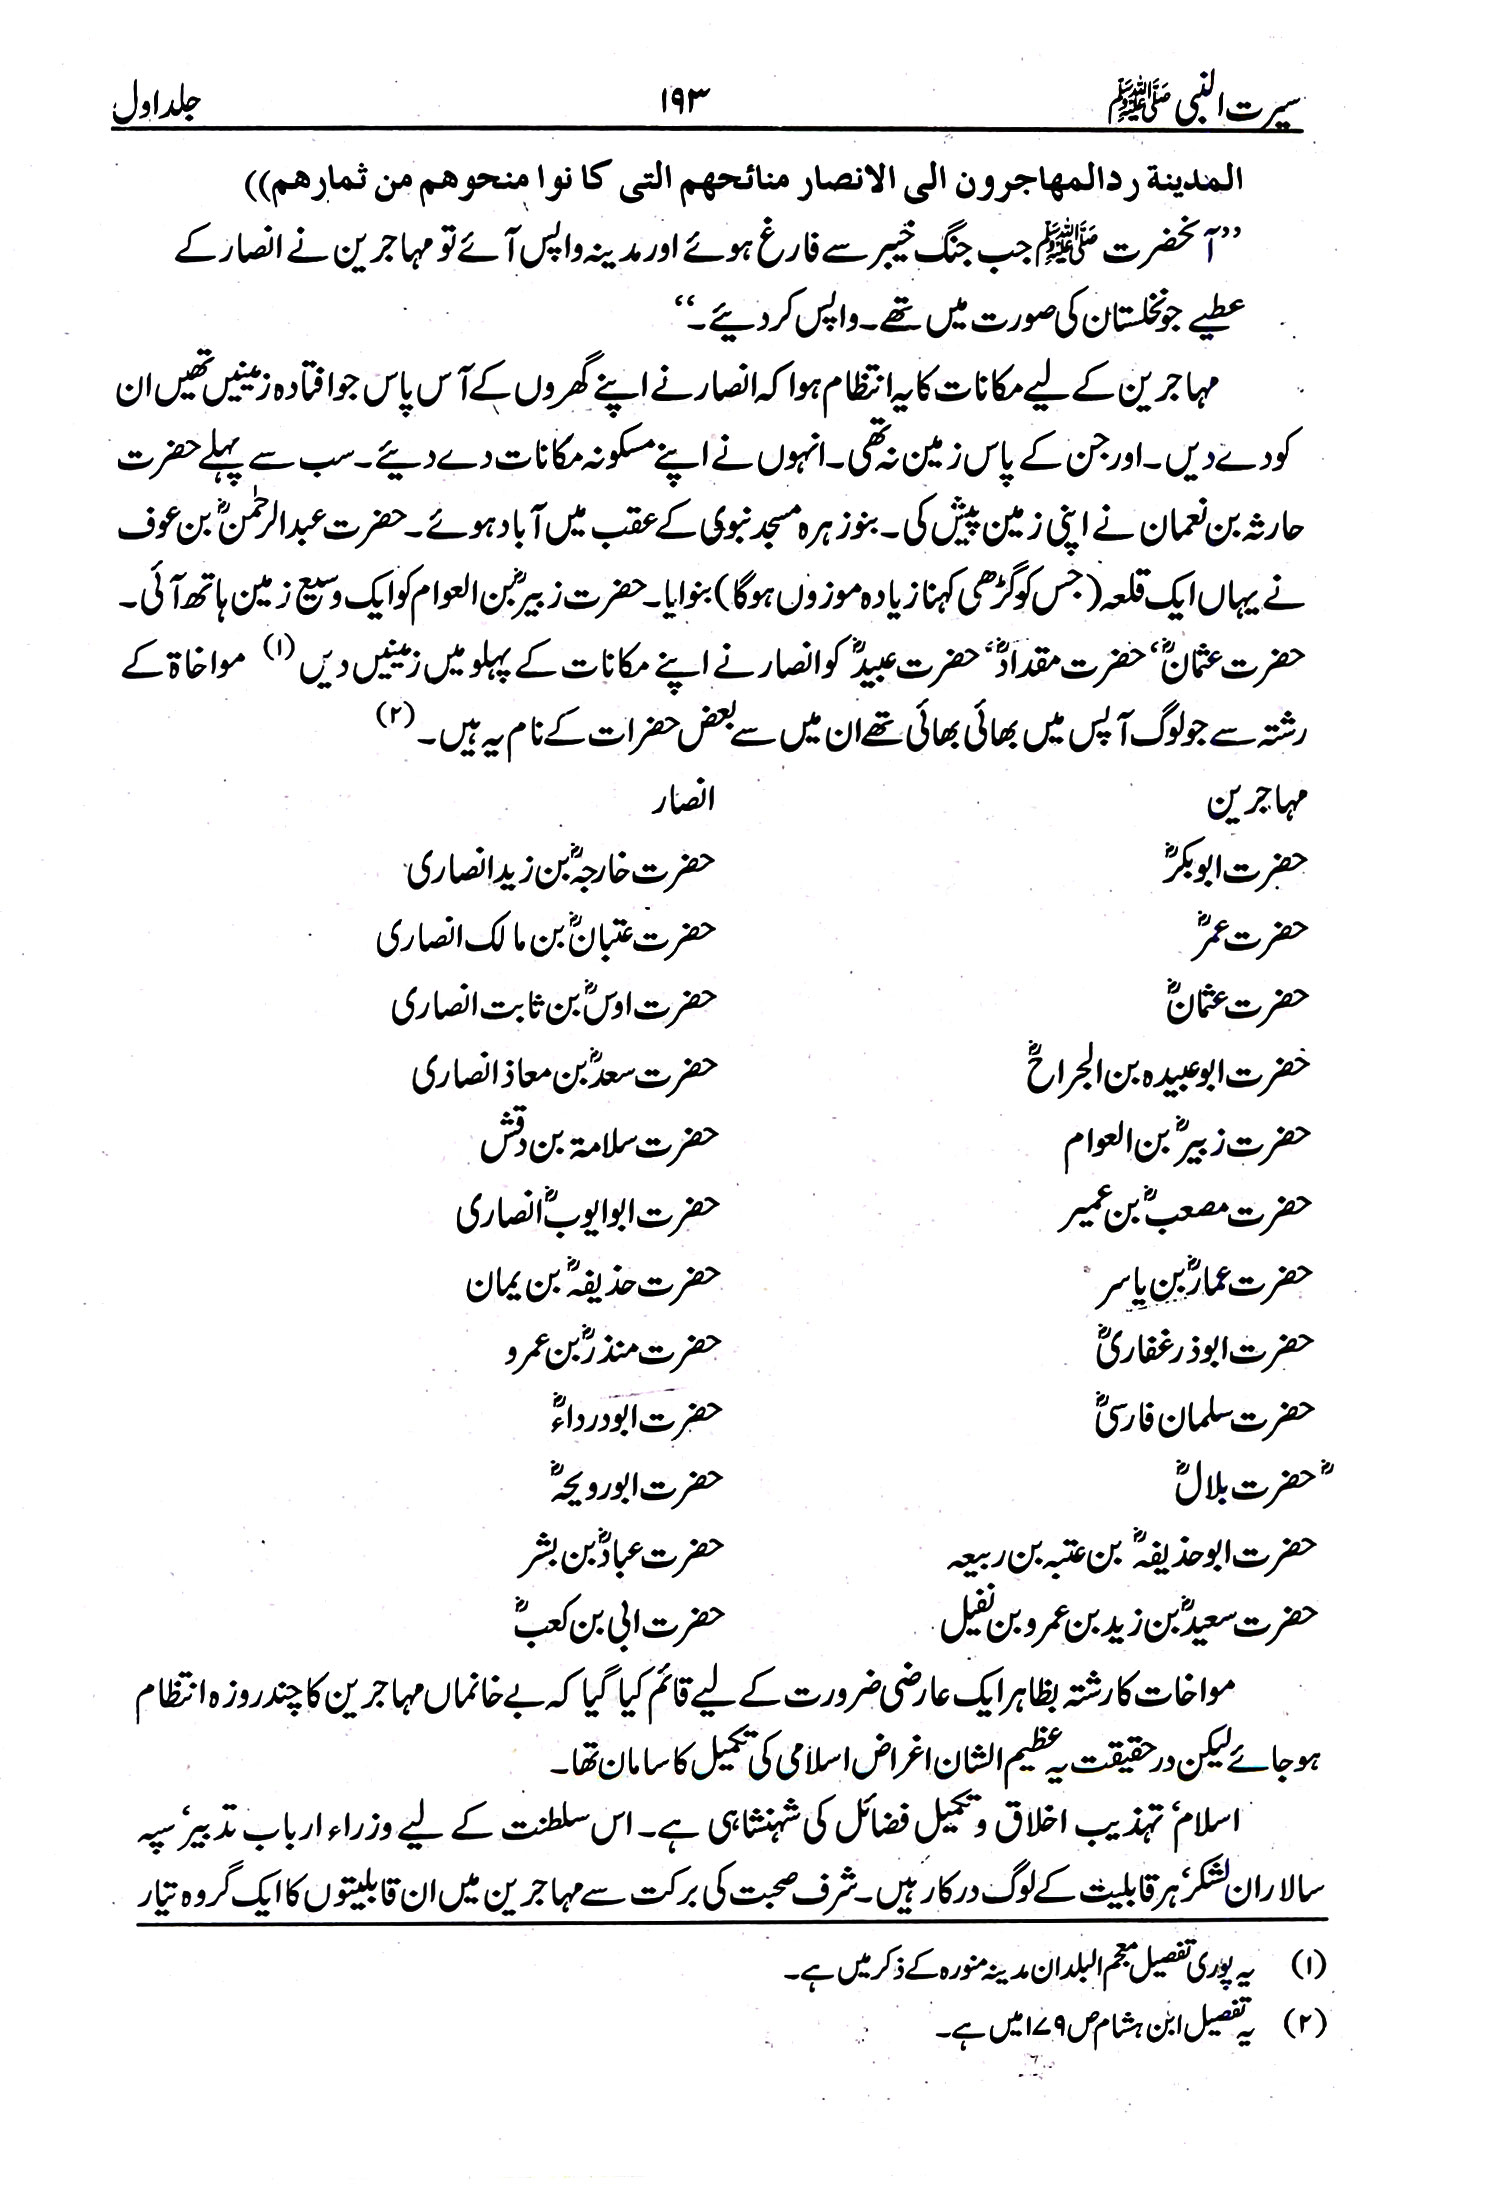 سیرت النبی ﷺ ۱۹۳ جلد اول
المدینة ردالمهاجرون الی الانصار منائحهم التی کا نوا منحوهم من ثمارهم))
’’آنحضرت ﷺ جب جنگ خیبر سے فارغ ہوئے اور مدینہ واپس آئے تو مہاجرین نے انصار کے
عطیے جو نخلستان کی صورت میں تھے۔ واپس کر دیئے۔‘‘
مہاجرین کے لیے مکانات کا یہ انتظام ہوا کہ انصار نے اپنے گھروں کے آس پاس جو افتادہ زمینیں تھیں ان
کو دے دیں۔ اور جن کے پاس زمین نہ تھی۔ انہوں نے اپنے مسکونہ مکانات دے دیئے۔ سب سے پہلے حضرت
حارثہ بن نعمان نے اپنی زمین پیش کی۔ بنو زہرہ مسجد نبوی کے عقب میں آباد ہوئے۔ حضرت عبدالرحمٰنؓ بن عوف
نے یہاں ایک قلعہ (جس کو گڑھی کہنا زیادہ موزوں ہوگا) بنوایا۔ حضرت زبیرؓ بن العوام کو ایک وسیع زمین ہاتھ آئی۔
حضرت عثمانؓ، حضرت مقدادؓ، حضرت عبیدؓ کو انصار نے اپنے مکانات کے پہلو میں زمینیں دیں (۱) مواخاۃ کے
رشتہ سے جو لوگ آپس میں بھائی بھائی تھے ان میں سے بعض حضرات کے نام یہ ہیں۔ (۲)
مہاجرین انصار
حضرت ابوبکرؓ حضرت خارجہؓ بن زید انصاری
حضرت عمرؓ حضرت عتبانؓ بن مالک انصاری
حضرت عثمانؓ حضرت اوسؓ بن ثابت انصاری
حضرت ابوعبیدہ بن الجراحؓ حضرت سعدؓ بن معاذ انصاری
حضرت زبیرؓ بن العوام حضرت سلامۃ بن دقش
حضرت مصعبؓ بن عمیر حضرت ابوایوبؓ انصاری
حضرت عمارؓ بن یاسر حضرت حذیفہؓ بن یمان
حضرت ابوذر غفاریؓ حضرت منذرؓ بن عمرو
حضرت سلمان فارسیؓ حضرت ابودرداءؓ
ؓ حضرت بلالؓ حضرت ابورویحہؓ
حضرت ابوحذیفہؓ بن عتبہ بن ربیعہ حضرت عبادؓ بن بشر
حضرت سعیدؓ بن زید بن عمرو بن نفیل حضرت ابی بن کعبؓ
مواخات کا رشتہ بظاہر ایک عارضی ضرورت کے لیے قائم کیا گیا کہ بے خانماں مہاجرین کا چند روزہ انتظام
ہو جائے لیکن در حقیقت یہ عظیم الشان اغراض اسلامی کی تکمیل کا سامان تھا۔
اسلام، تہذیب اخلاق و تکمیل فضائل کی شہنشاہی ہے۔ اس سلطنت کے لیے وزراء ارباب تدبیر، سپہ
سالاران لشکر، ہر قابلیت کے لوگ درکار ہیں۔ شرف صحبت کی برکت سے مہاجرین میں ان قابلیتوں کا ایک گروہ تیار
(۱) یہ پوری تفصیل معجم البلدان مدینہ منورہ کے ذکر میں ہے۔
(۲) یہ تفصیل ابن ہشام ص ۱۷۹ میں ہے۔